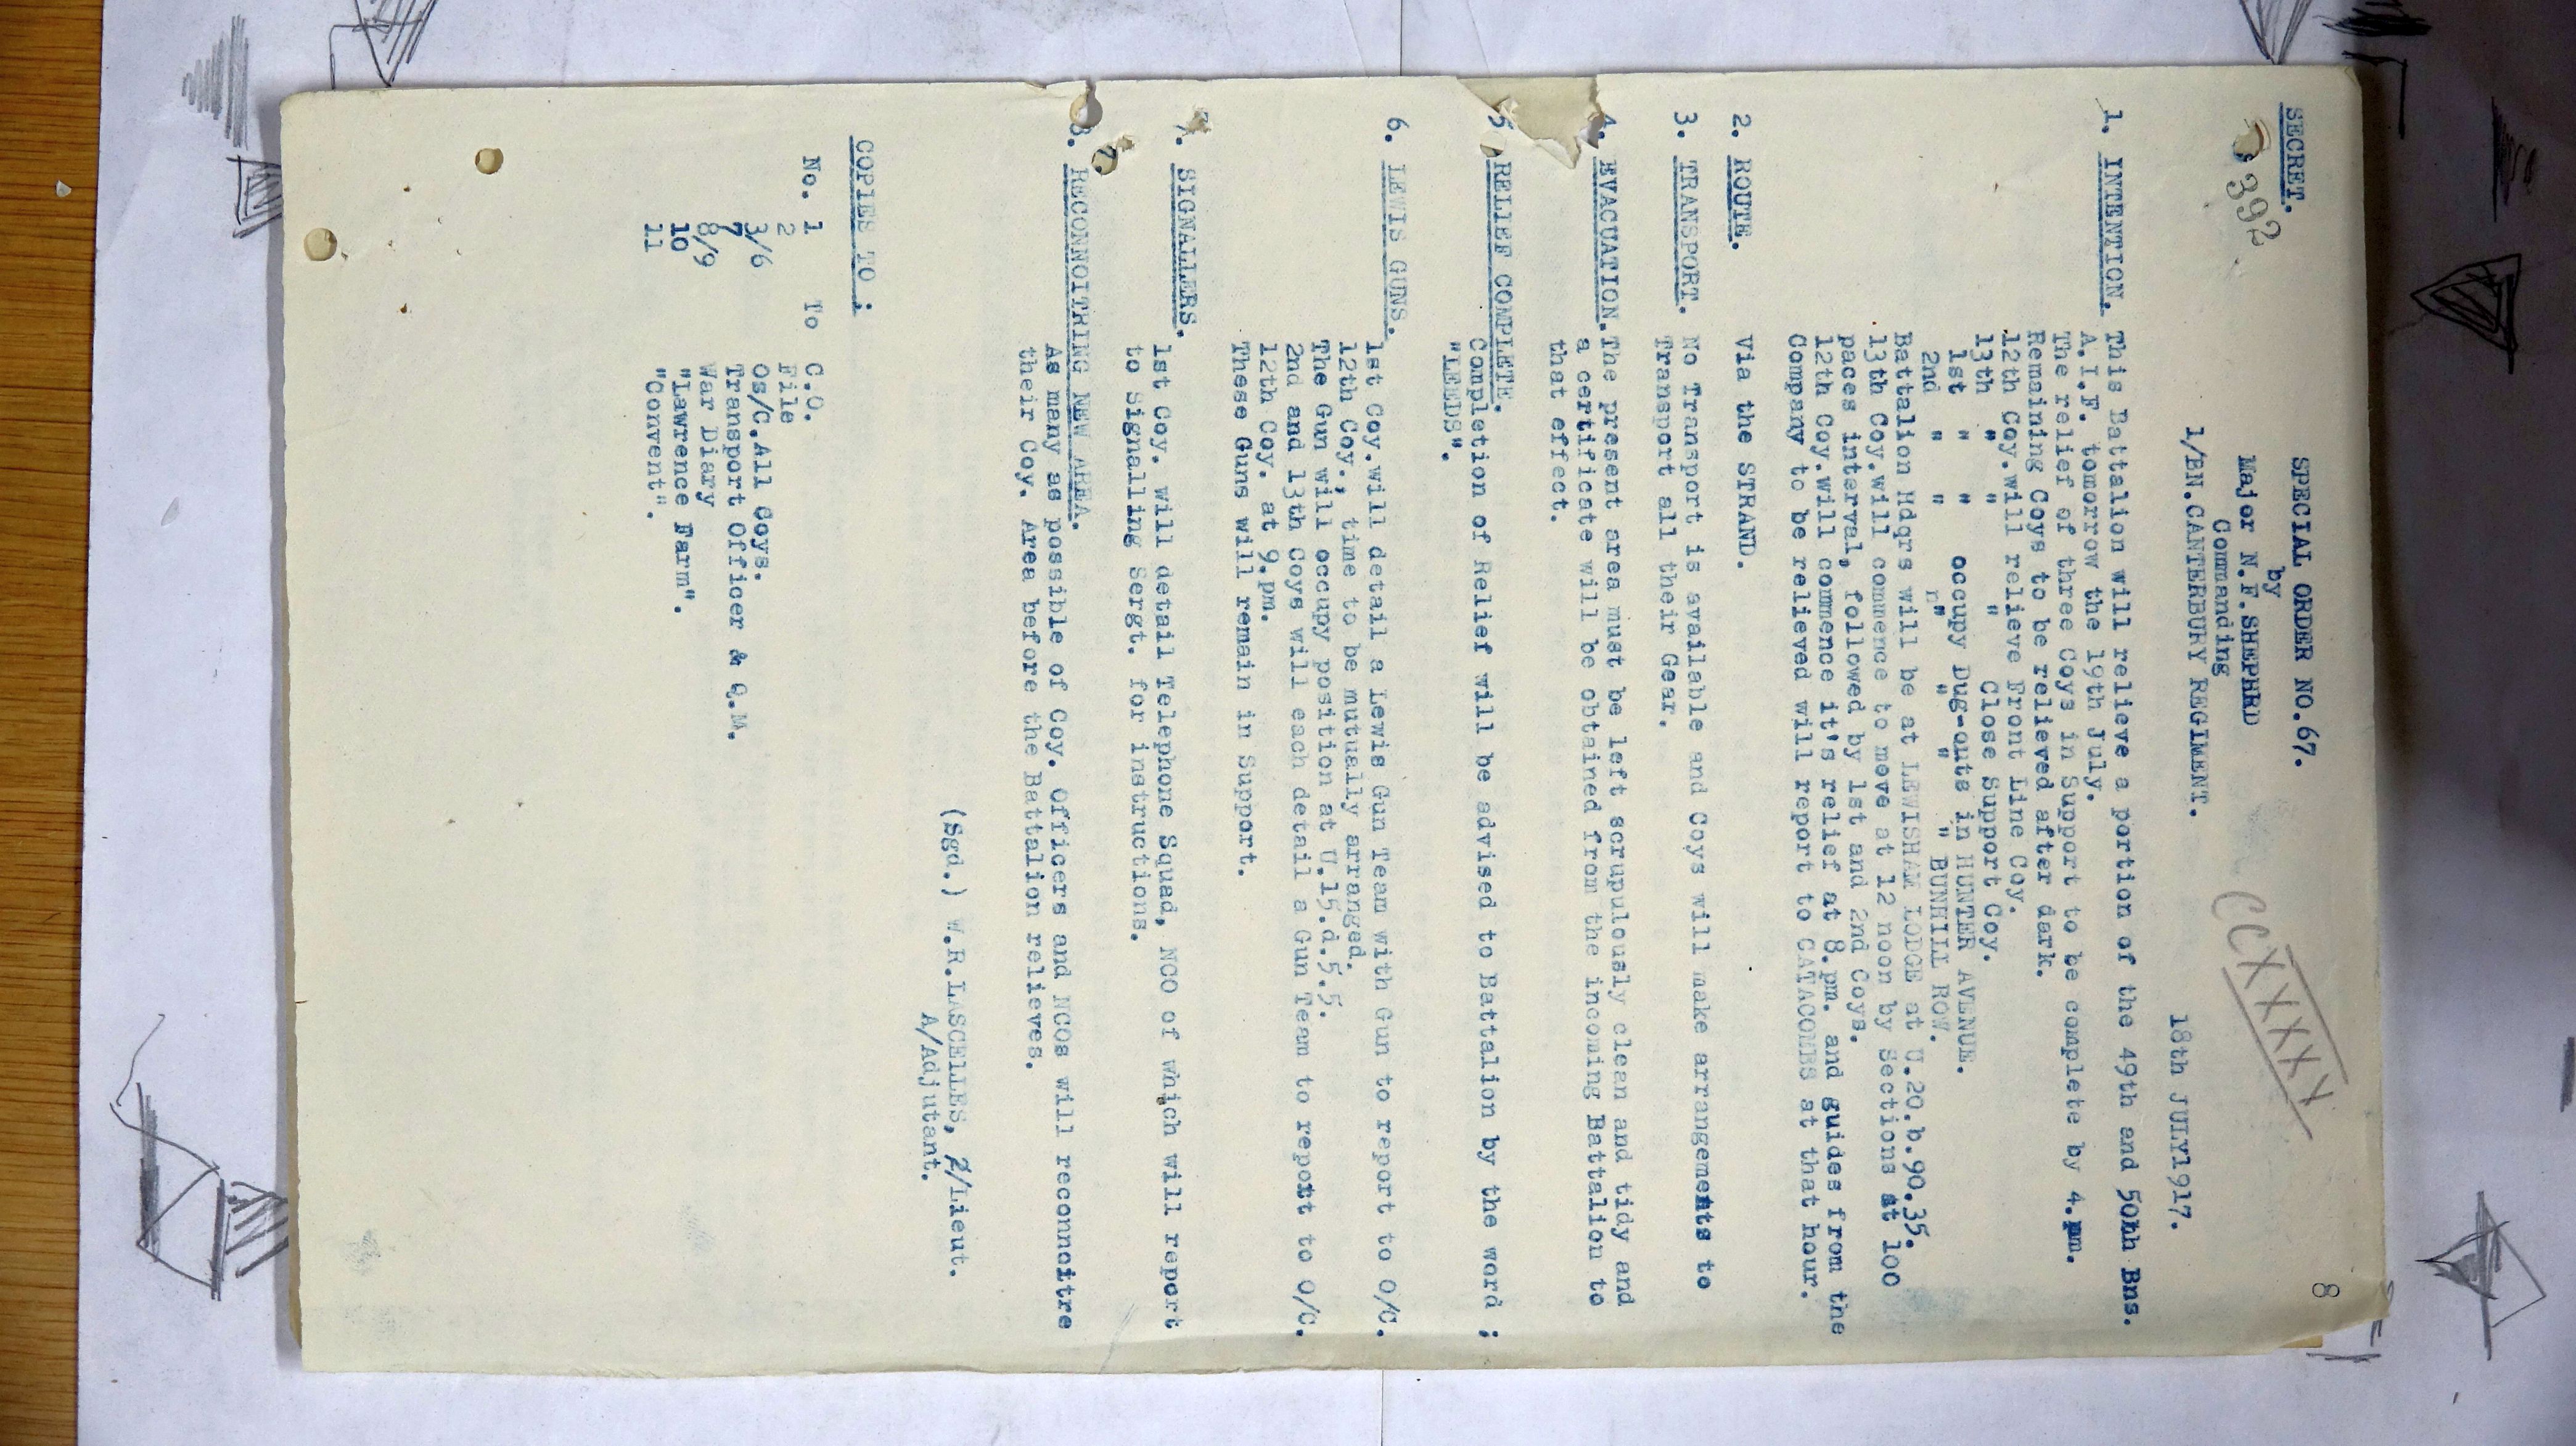 8
SECRET.
392
SPECIAL ORDER NO.67.
by
Major N.F.SHEPHRD
Commanding
1/BN.CANTERBURY REGIMENT.
CCXXXXX
18th JULY1917.
1. INTENTION. This Battalion will relieve a portion of the 49th and 50hh Bns.
A.I.F. tomorrow the 19th July.
The relief of three Coys in Support to be complete by 4.pm.
Remaining Coys to be relieved after dark.
12th Coy.will relieve Front Line Coy.
13th " " " Close Support Coy.
1st " " occupy Dug-outs in HUNTER AVENUE.
2nd " " " " " " BUNHILL ROW.
Battalion Hdqrs will be at LEWISHAM LODGE at U.20.b.90.35.
13th Coy.will commence to move at 12 noon by Sections at 100
paces interval, followed by 1st and 2nd Coys.
12th Coy.will commence it's relief at 8.pm. and guides from the
Company to be relieved will report to CATACOMBS at that hour.
2. ROUTE. Via the STRAND.
3. TRANSPORT. No Transport is available and Coys will make arrangements to
Transport all their Gear.
4. EVACUATION. The present area must be left scrupulously clean and tidy and
a certificate will be obtained from the incoming Battalion to
that effect.
5 RELIEF COMPLETE.
Completion of Relief will be advised to Battalion by the word :
"LEEDS".
6. LEWIS GUNS.
1st Coy.will detail a Lewis Gun Team with Gun to report to O/C.
12th Coy., time to be mutually arranged.
The Gun will occupy position at U.15.d.5.5.
2nd and 13th Coys will each detail a Gun Team to report to O/C.
12th Coy. at 9.pm.
These Guns will remain in Support.
7. SIGNALLERS.
1st Coy. will detail Telephone Squad, NCO of which will report
to Signalling Sergt. for instructions.
8. RECONNOITRING NEW AREA.
As many as possible of Coy. Officers and NCOs will reconnoitre
their Coy. Area before the Battalion relieves.
(Sgd.) W.R.LASCELLES, 2/Lieut.
A/Adjutant.
COPIES TO :
No. 1 To C.O.
2 File
3/6 Os/C.All Coys.
7 Transport Officer & Q.M.
8/9 War Diary
10 "Lawrence Farm".
11 "Convent".